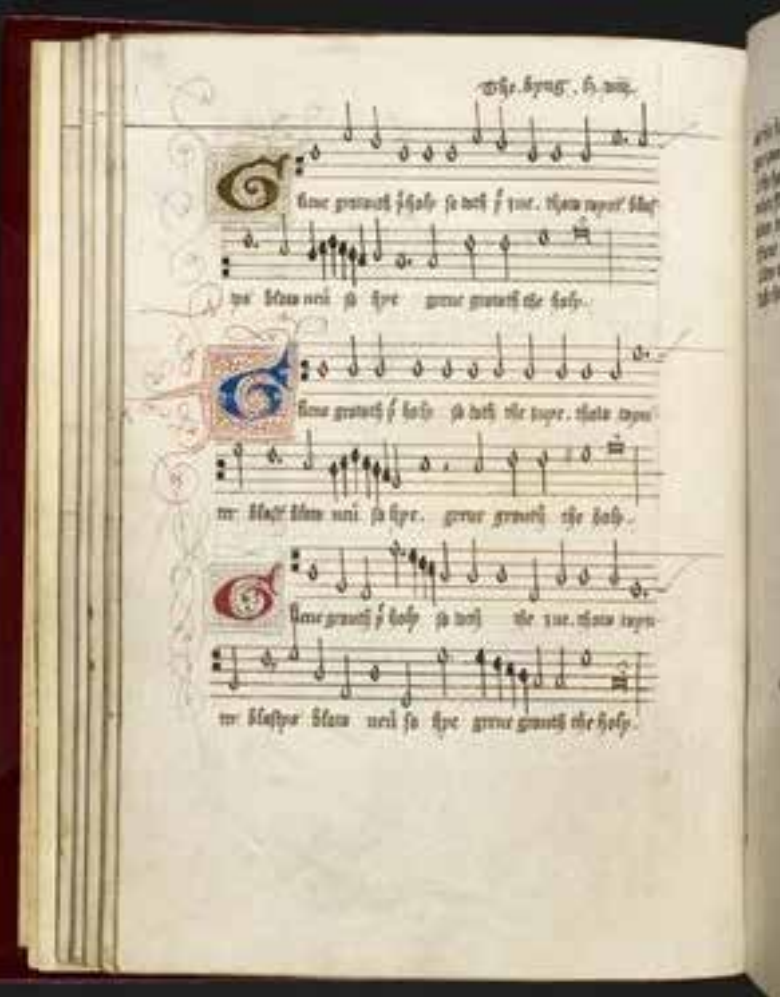 The . kyng . h . viij .
Grene growith þe holy so doth þe iue . thow wynt blas
ys blow neu so hye grene growth the holy .
Grene growth þe holy so doth the iuye . thow wynt
er blast blow neu so hye . grene growth the holy .
Grene growth þe holy so doth the iue . thow wynt
er blastys blow neu so hye grene growth the holy .